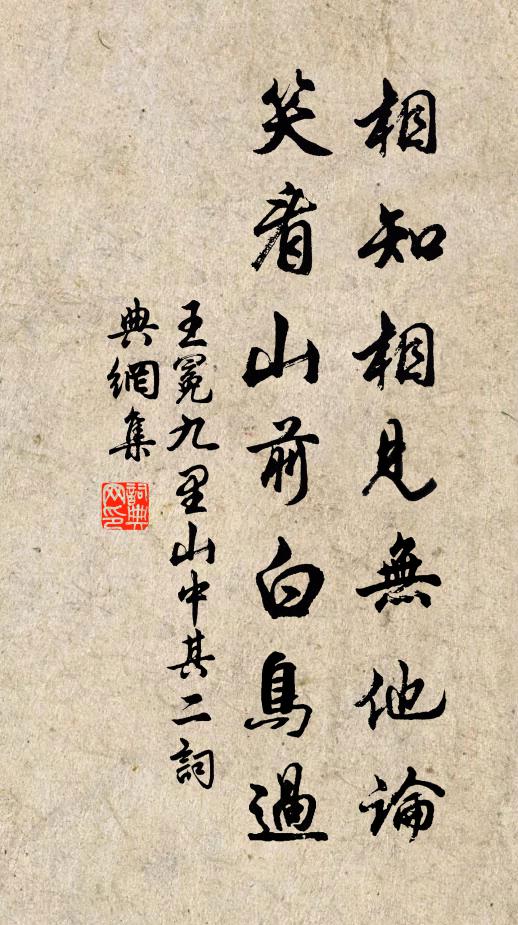 相知相見無他論
笑看山前白鳥過
王冕九里山中其二詞
典網集
詞典
网印